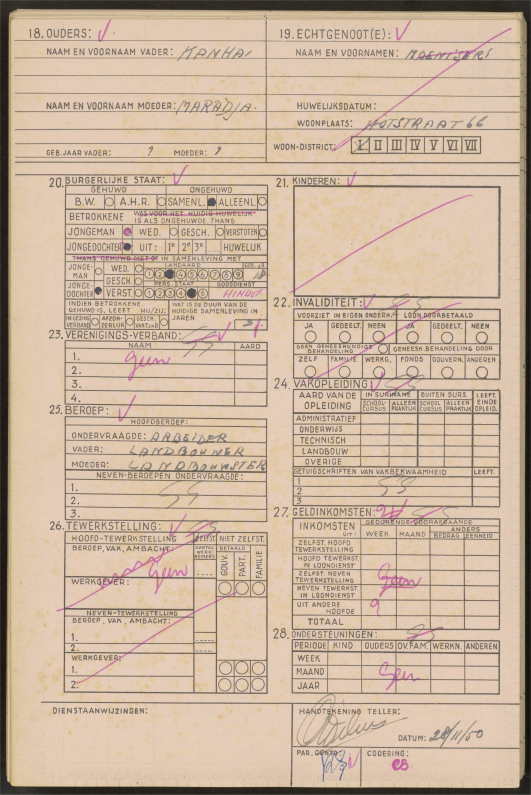 18. OUDERS: V
NAAM EN VOORNAAM VADER: KANHAI
NAAM EN VOORNAAM MOEDER: MARADJA.
GEB.JAAR VADER: ? MOEDER: ?
19. ECHTGENOOT(E): V
NAAM EN VOORNAMEN: MOENISERI
HUWELIJKSDATUM:
WOONPLAATS: HOTSTRAAT 66
WOON-DISTRICT: I II III IV V VI VII
20. BURGERLIJKE STAAT: V
GEHUWD ONGEHUWD
B.W. A.H.R. SAMENL. ALLEENL.
BETROKKENE WAS VOOR HET HUIDIG HUWELIJK
IS ALS ONGEHUWDE THANS
JONGEMAN WED. GESCH. VERSTOTEN
JONGEDOCHTER UIT: 1e 2e 3e ... HUWELIJK
THANS GEHUWD MET OF IN SAMENLEVING MET
JONGE-MAN WED. LANDAARD GEB. JR.
GESCH. 1 2 3 4 5 6 7 8 9
JONGE-DOCHTER VERST. PERS. STAAT GODSDIENST
HINDOE
INDIEN BETROKKENE GEHUWD IS, LEEFT HIJ/ZIJ:
IN GEZINSVERBAND AFZONDERLIJK GESCH. V. TAFEL EN B.
WAT IS DE DUUR VAN DE HUIDIGE SAMENLEVING IN JAREN
21. KINDEREN: V
22. INVALIDITEIT: V
VOORZIET IN EIGEN ONDERH. LOON DOORBETAALD
JA GEDEELT. NEEN JA GEDEELT. NEEN
GEEN GENEESKUNDIGE BEHANDELING GENEESK. BEHANDELING DOOR
ZELF FAMILIE WERKG. FONDS GOUVERN. ANDEREN
23. VERENIGINGS-VERBAND: V
NAAM AARD
1. Geen
2.
3.
4.
24. VAKOPLEIDING V
AARD VAN DE OPLEIDING IN SURINAME BUITEN SURS LEEFT. EINDE OPLEID.
SCHOOL-CURSUS ALLEEN PRAKTIJK SCHOOL CURSUS ALLEEN PRAKTIJK
ADMINISTRATIEF
ONDERWIJS
TECHNISCH
LANDBOUW
OVERIGE
GETUIGSCHRIFTEN VAN VAKBEKWAAMHEID LEEFT.
1
2
3
25. BEROEP: V
HOOFDBEROEP:
ONDERVRAAGDE: ARBEIDER
VADER: LANDBOUWER
MOEDER: LANDBOUWSTER
NEVEN-BEROEPEN ONDERVRAAGDE:
1.
2.
3.
26. TEWERKSTELLING: V
HOOFD-TEWERKSTELLING ZELFST. NIET ZELFST.
BEROEP, VAK, AMBACHT: AANTAL WERKNEMERS BETAALD
GOUV. PART. FAMILIE
Geen
WERKGEVER:
NEVEN-TEWERKSTELLING
BEROEP, VAK, AMBACHT:
1.
2.
WERKGEVER:
1.
2.
27. GELDINKOMSTEN:
INKOMSTEN UIT:
GEDURENDE VOORAFGAANDE
WEEK MAAND ANDERS
BEDRAG EENHEID
ZELFST. HOOFD TEWERKSTELLING
HOOFD TEWERKST. IN LOONDIENST
ZELFST. NEVEN TEWERKSTELLING Geen
NEVEN TEWERKST. IN LOONDIENST
UIT ANDERE HOOFDE 9
TOTAAL
28. ONDERSTEUNINGEN:
PERIODE KIND OUDERS OV.FAM. WERKN. ANDEREN
WEEK
MAAND Geen
JAAR
DIENSTAANWIJZINGEN:
HANDTEKENING TELLER:
DATUM: 28/11/50
PAR. CONTR. CODERING:
CB